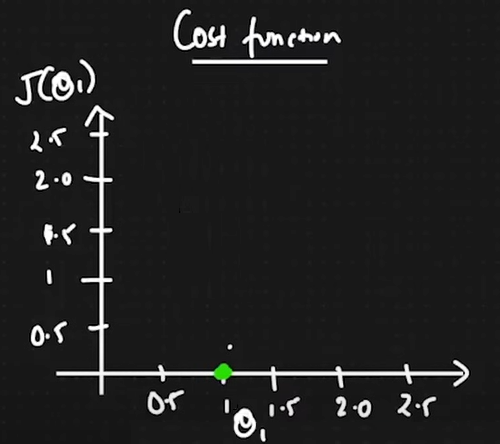 Cost function
J(θ₁)
2.5
2.0
1.5
1
0.5
0.5 1 1.5 2.0 2.5
θ₁